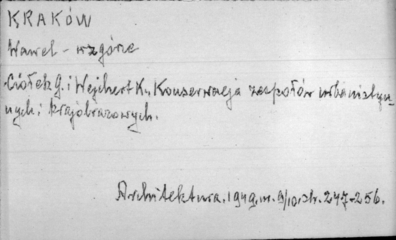 KRAKÓW
Wawel - wzgórze
Ciołek G. i Wejchert K., Konserwacja zespołów urbanistycz-
nych i krajobrazowych.
Architektura. 1949. nr. 9/10. str. 247-256.